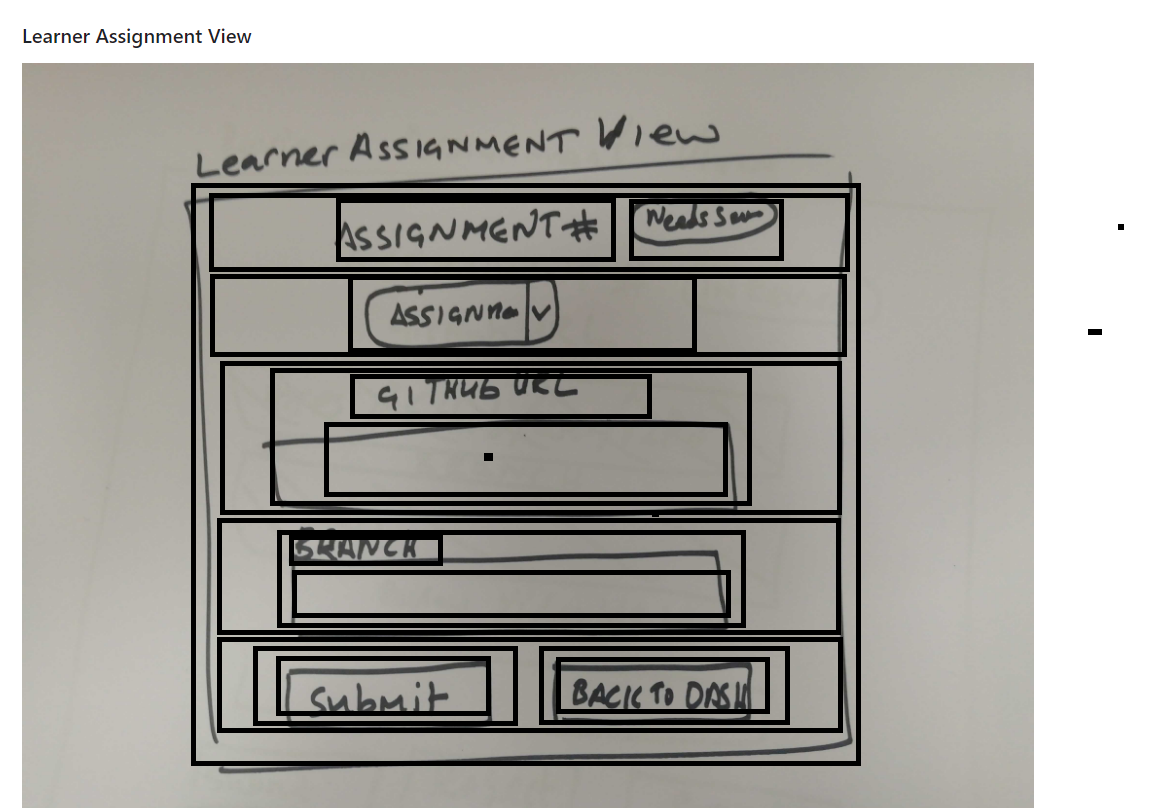 Learner Assignment View
Learner ASSIGNMENT View
ASSIGNMENT #
Needs
ASSIGNME
GITHUB URL
BRANCH
Submit
BACK TO DASH